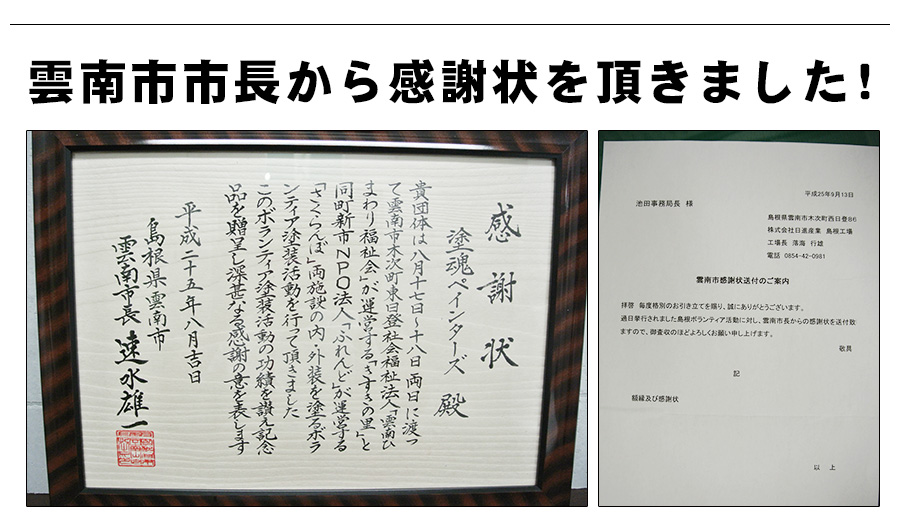 雲南市市長から感謝状を頂きました!
感謝状
塗魂ペインターズ 殿
貴団体は八月十七日～十八日両日に渡っ
て雲南市木次町東日登社会福祉法人「雲南ひ
まわり福祉会」が運営する「きすきの里」と
同町新市NPO法人「ふれんど」が運営する
「さくらんぼ」両施設の内・外装を塗るボラ
ンティア塗装活動を行って頂きました
このボランティア塗装活動の功績を讃え記念
品を贈呈し深甚なる感謝の意を表します
平成二十五年八月吉日
島根県雲南市
雲南市長 速水雄一
平成25年9月13日
池田事務局長 様
島根県雲南市木次町西日登86
株式会社日進産業 島根工場
工場長 落海 行雄
電話 0854-42-0981
雲南市感謝状送付のご案内
拝啓 毎度格別のお引き立てを賜り、誠にありがとうございます。
過日挙行されました島根ボランティア活動に対し、雲南市長からの感謝状を送付致
しますので、御査収のほどよろしくお願い申し上げます。
敬具
記
額縁及び感謝状
以 上